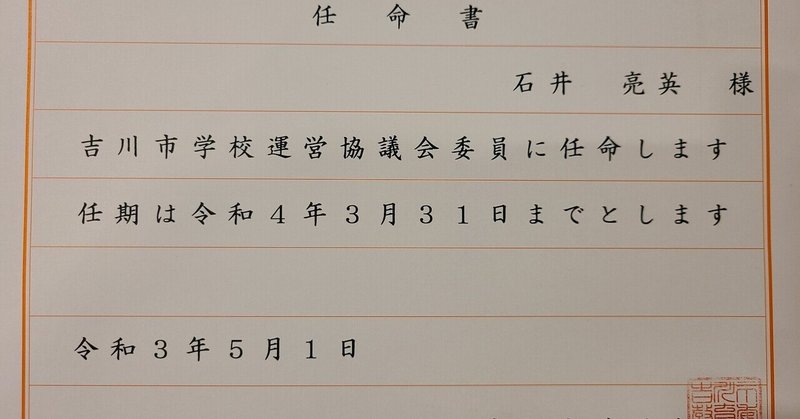 任命書
石井 亮英 様
吉川市学校運営協議会委員に任命します
任期は令和4年3月31日までとします
令和3年5月1日